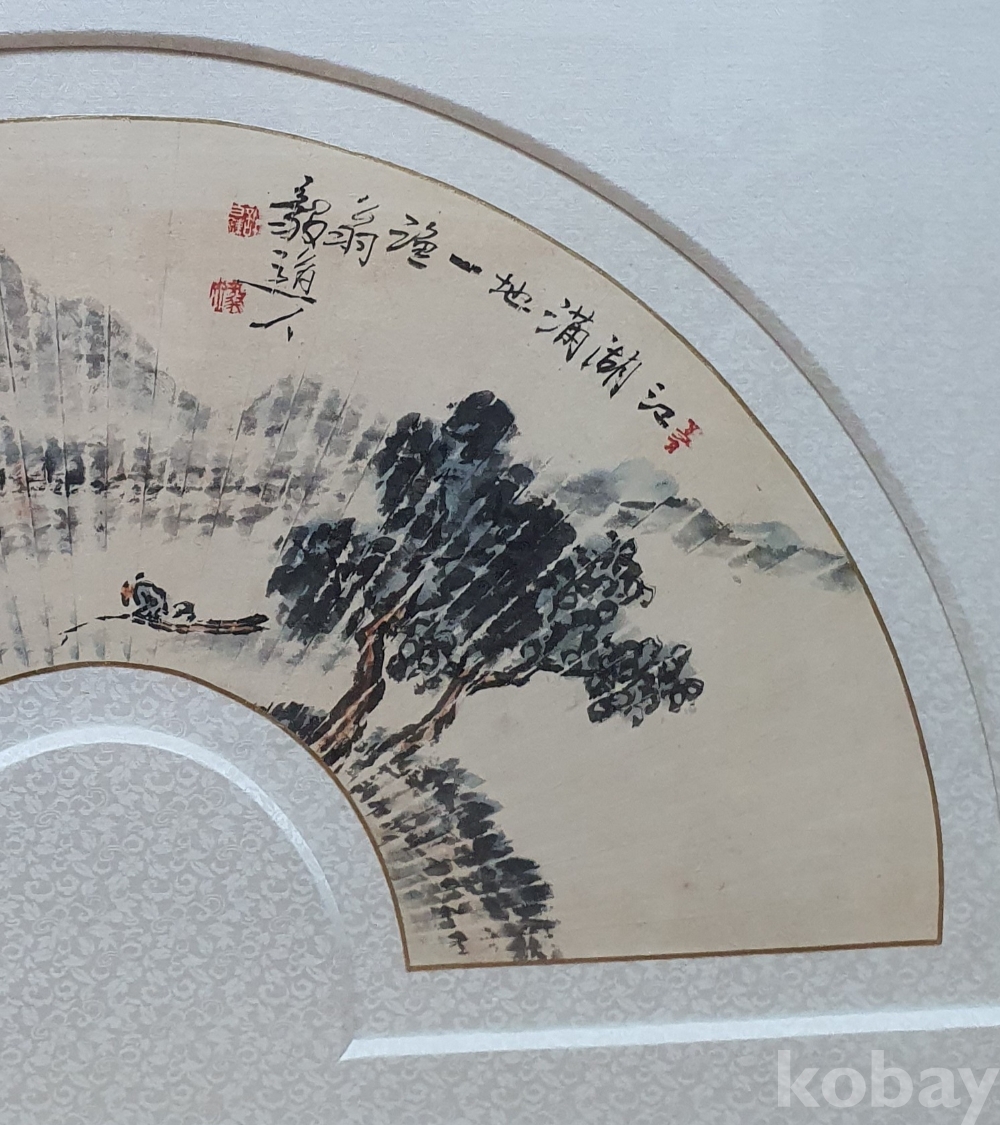 江湖滿地一漁翁
毅道人
kobay